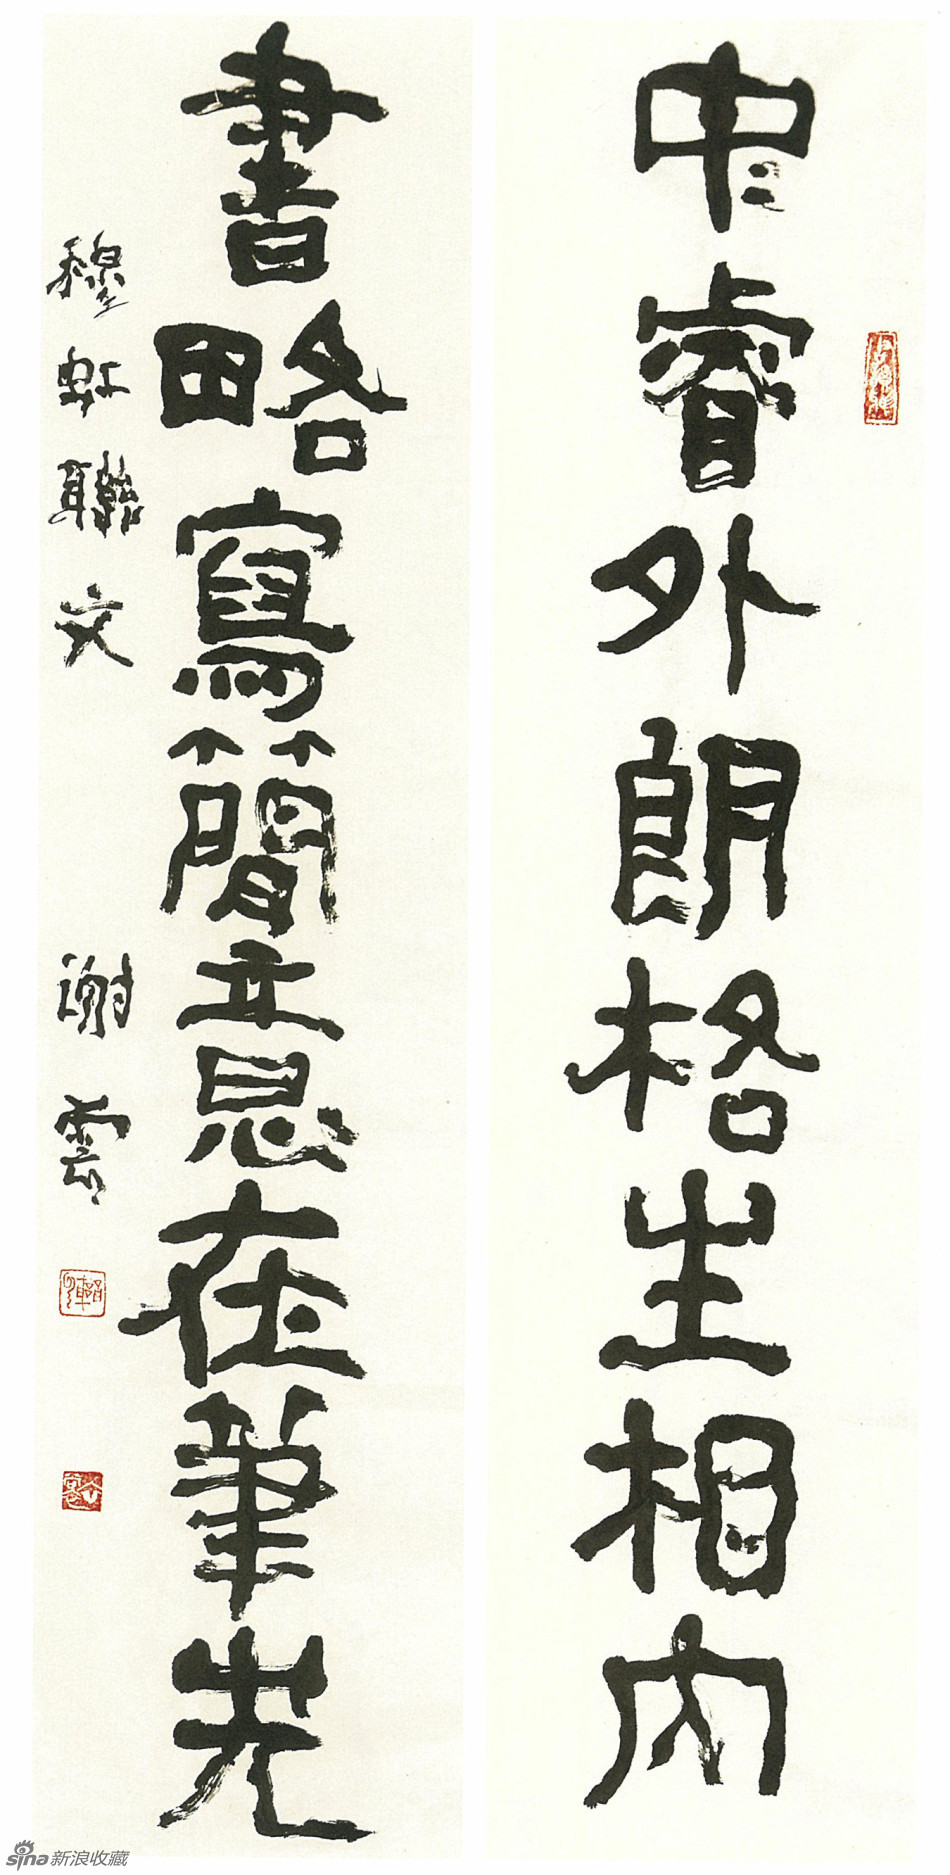 中睿外朗格生相内
書略寫簡意在筆先
穆虹聯文 謝雲
sina新浪收藏